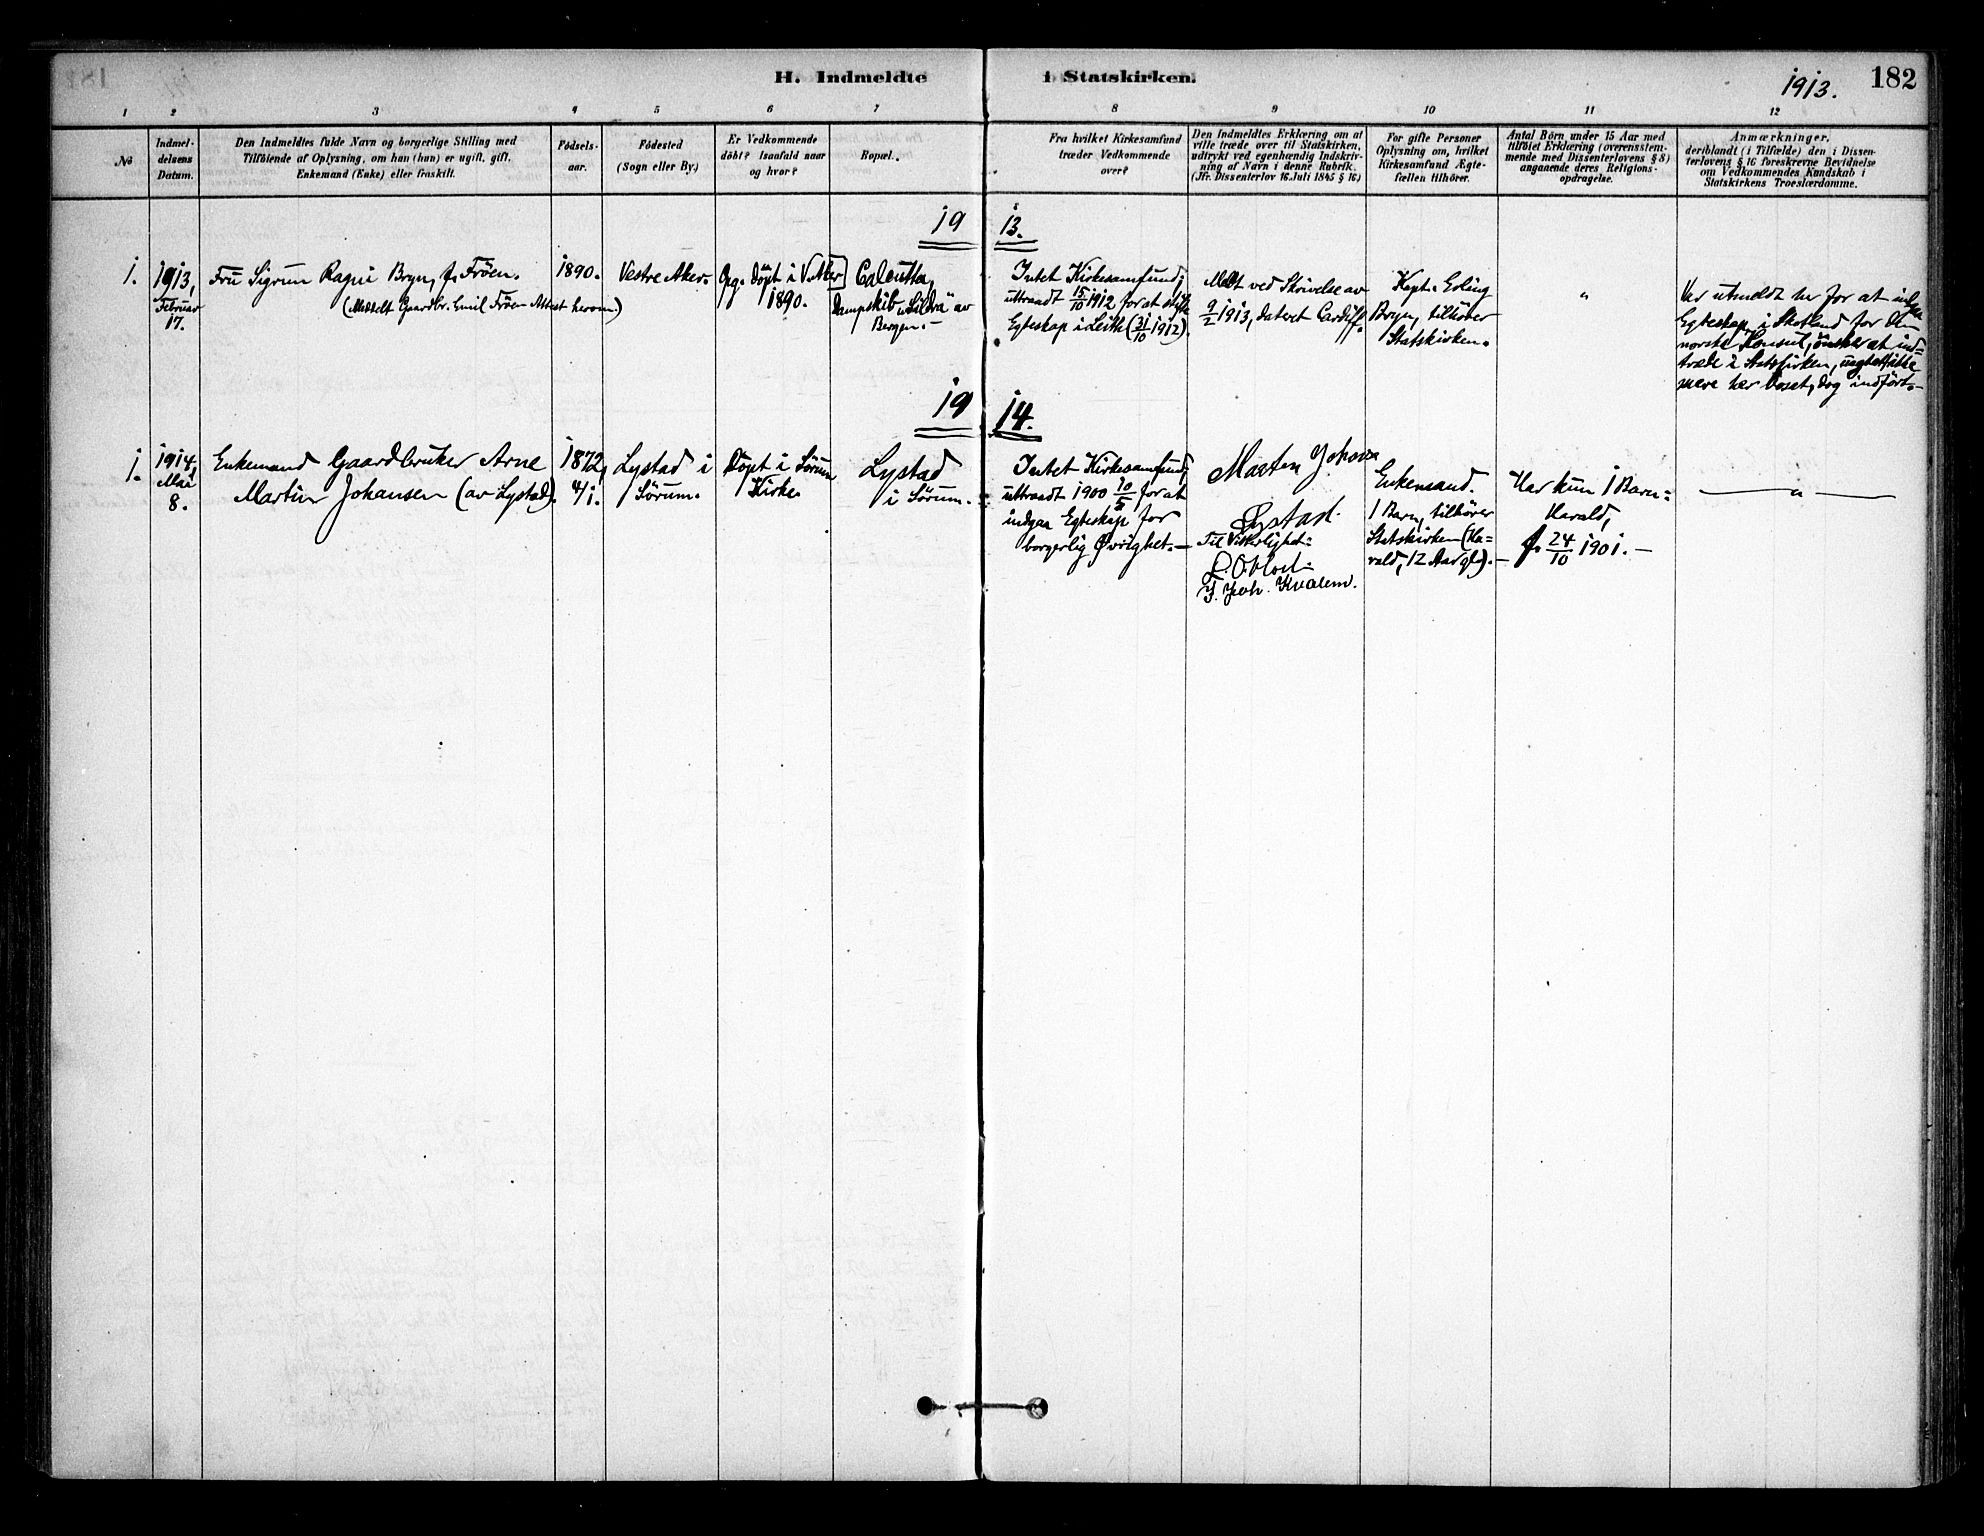 H. Indmeldte i Statskirken.
1913.
182
1 2 3 4 5 6 7 8 9 10 11 12
No
Indmel-
delsens
Datum.
Den Indmeldtes fulde Navn og borgerlige Stilling med
Tilføiende af Oplysning, om han (hun) er ugift, gift,
Enkemand (Enke) eller fraskilt.
Fødsels-
aar.
Fødested
(Sogn eller By.)
Er Vedkommende
döbt? Isaafald naar
og hvor?
Bopæl.
Fra hvilket Kirkesamfund
træder Vedkommende
over?
Den Indmeldtes Erklæring om at
ville træde over til Statskirken,
udtrykt ved egenhændig Indskriv-
ning af Navn i denne Rubrik.
(Jfr. Dissenterlov 16. Juli 1845 § 16)
For gifte Personer
Oplysning om, hvilket
Kirkesamfund Ægte-
fællen tilhører.
Antal Børn under 15 Aar med
tilføiet Erklæring (overensstem-
mende med Dissenterlovens § 8)
angaaende deres Religions-
opdragelse.
Anmærkninger,
deriblandt (i Tilfælde) den i Dissen-
terlovens § 16 foreskrevne Bevidnelse
om Vedkommendes Kundskab i
Statskirkens Troeslærdomme.
19 13.
1.
1913,
Februar
17.
Fru Sigrun Ragni Bryn, f. Frøen.
(Meddelt Gaardbr. Emil Frøen Attest herom.)
1890.
Vestre Aker.
Opg. døpt i V. Aker
1890.
Calcutta,
Dampskib "Sildra" av
Bergen.
Intet Kirkesamfund;
uttraadt 15/10 1912 for at stifte
Egteskap i Leith (31/10 1912).
Meldt ved Skrivelse av
9/2 1913, dateret Cardiff.
Kapt. Erling
Bryn, tilhører
Statskirken.
"
Var utmeldt her for at indgaa
Egteskap i Skotland for den
norske Konsul, ønsker at ind-
træde i Statskirken, uagtet ikke
mere her bosat, dog indført.
19 14.
1.
1914,
Mai
8.
Enkemand Gaardbruker Arne
Martin Johansen (av Lystad).
1872,
4/1.
Lystad i
Sørum.
Døpt i Sørum
Kirke.
Lystad
i Sørum.
Intet Kirkesamfund;
uttraadt 1900 10/5 for at
indgaa Egteskap for
borgerlig Øvrighet.
Marten Johansen
Lystad.
Til Vitterlighet:
J. Joh. Kvalem.
Enkemand.
1 Barn, tilhører
Statskirken (Ha-
rald, 12 Aar gl.).
Har kun 1 Barn:
Harald,
f. 24/10 1901.
"